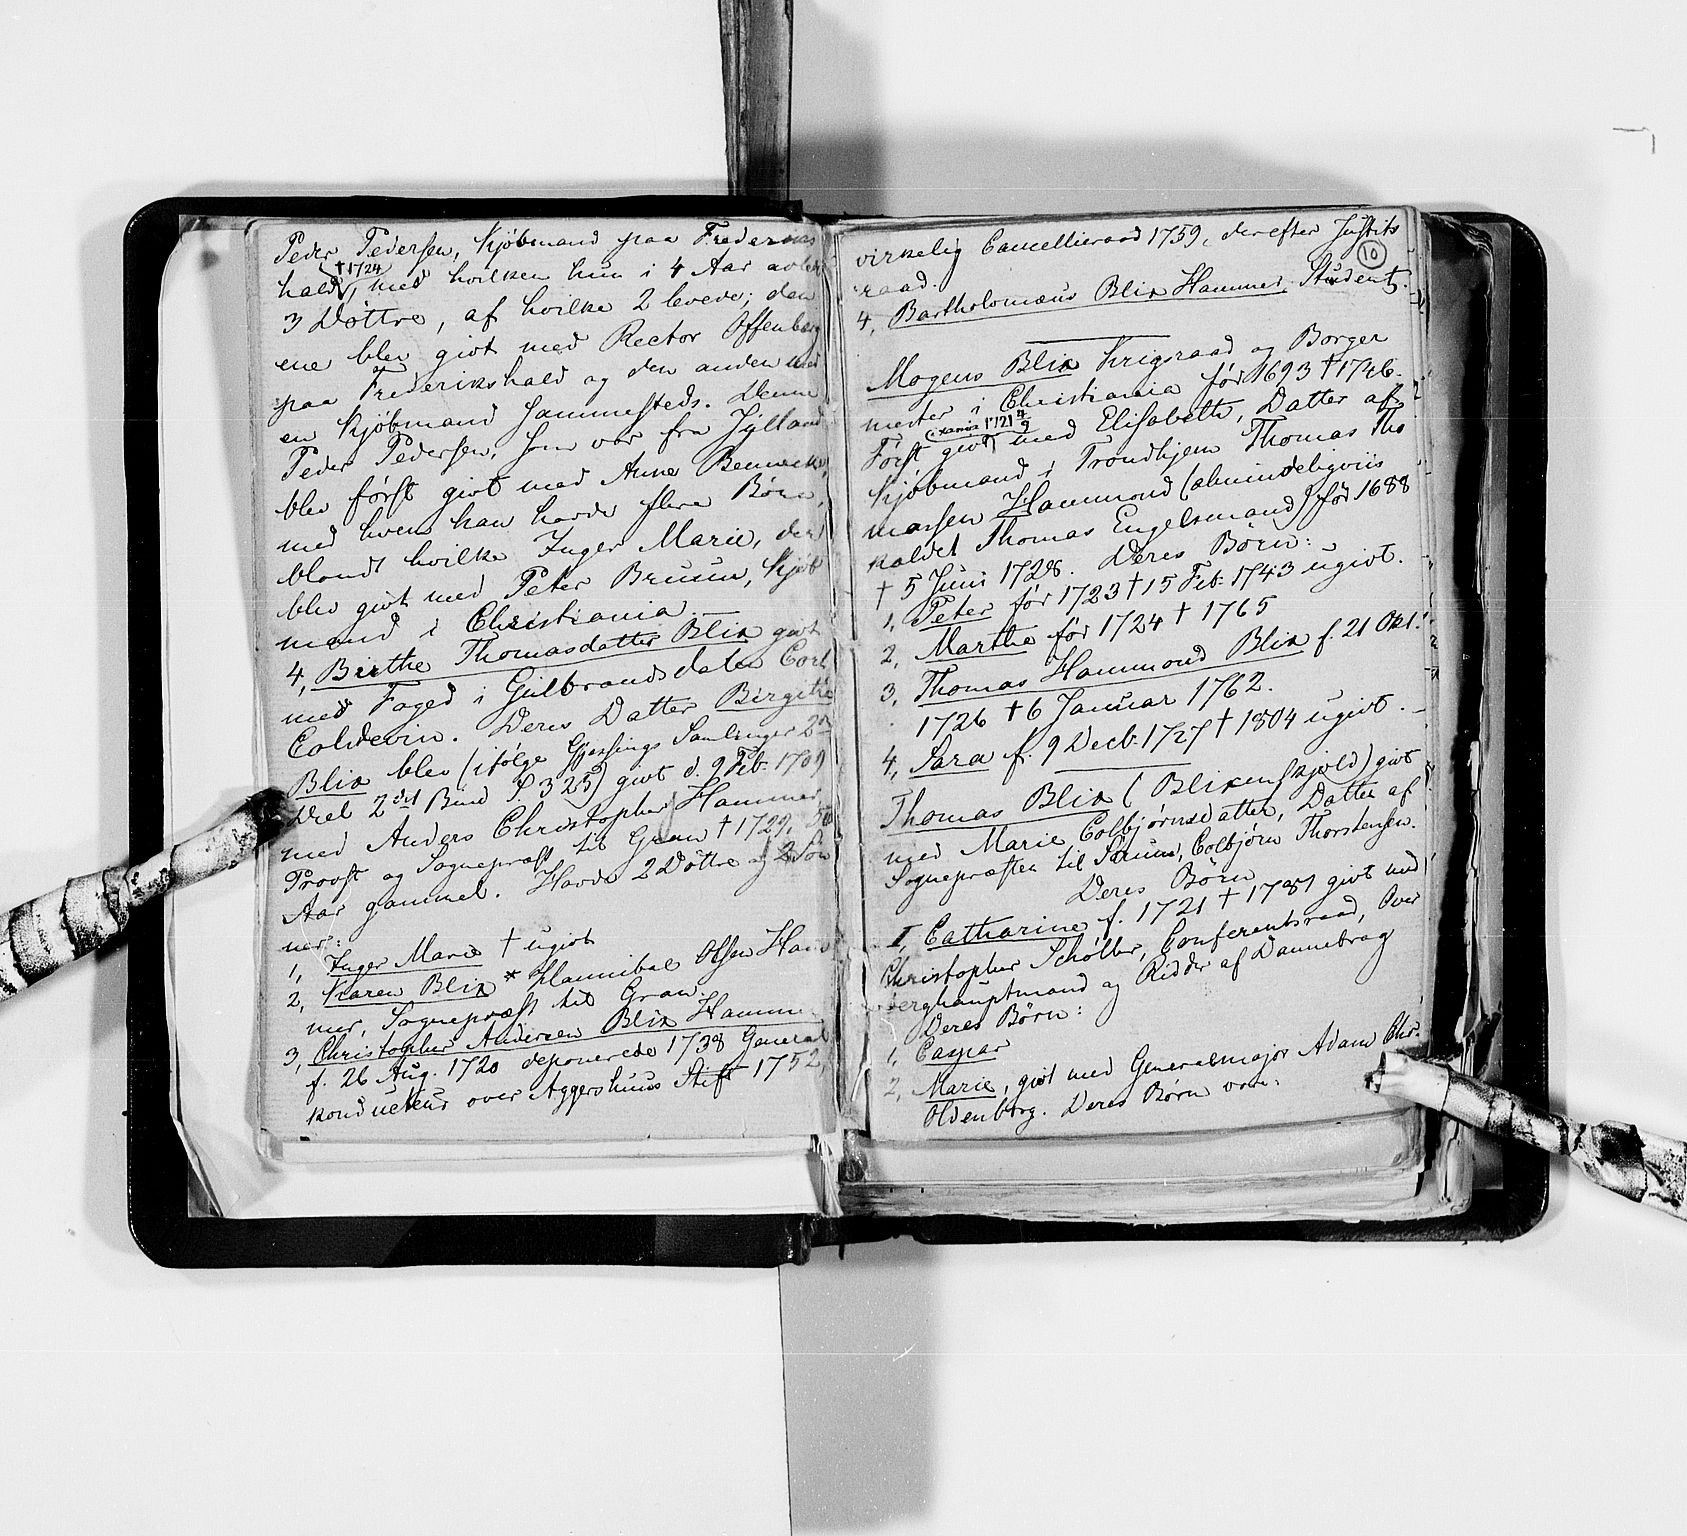 Peder Pedersen, Kjöbmand paa Frederiks
hald, † 1724 med hvilken hun i 4 Aar avlede
3 Döttre, af hvilke 2 levede; den
ene blev givt med Rector Offenberg
paa Frederikshald og den anden med
en Kjöbmand Hammersteds. Denne
Peder Pedersen, som var fra Jylland
blev först givt med Anne Bennecke,
med hvem han havde flere Börn,
blandt hvilke Inger Marie, der
blev givt med Peter Bruun, Kjöb
mand i Christiania.
4, Birthe Thomasdatter Blix givt
med Foged i Gulbrandsdalen Cort
Coldevin. Deres Datter Birgitte
Blix blev (ifölge Gjessings Samlinger 2den
Deel 2det Bind S 325) givt d. 9 Feb. 1709
med Anders Christopher Hammer,
Provst og Sognepræst til Gran † 1729, 50
Aar gammel. Havde 2 Döttre og 2 Sön
ner:
1, Inger Marie † ugivt
2, Karen Blix * Hannibal Olsen Ham
mer, Sognepræst til Gran.
3, Christopher Andersen Blix Hammer
f. 26 Aug. 1720 deponerede 1738 General
konducteur over Aggershuus Stift 1752,
10
virkelig Cancellieraad 1759, derefter Justits
raad.
4, Bartholomæus Blix Hammer, Student.
Mogens Blix Krigsraad og Borger
mester i Christiania för 1693 † 1746.
Först givt (Xania 1721 4/9) med Elisabeth, Datter af
Kjöbmand i Trondhjem Thomas Tho
massen Hammond (almindeligviis
kaldet Thomas Engelsmand) för 1688
† 5 Juni 1728. Deres Börn:
1, Peter för 1723 † 15 Feb. 1743 ugivt.
2, Marthe för 1724 † 1765
3, Thomas Hammond Blix f. 21 Okt.
1726 † 6 Januar 1762.
4, Sara f. 9 Decb. 1727 † 1804 ugivt.
Thomas Blix (Blixenskjold) givt
med Marie Colbjörnsdatter, Datter af
Sognepræsten til Sörum, Colbjörn Thorstensen.
Deres Börn
I, Catharine f. 1721 † 1781 givt med
Christopher Schöller, Conferentsraad, Over
berghauptmand og Ridder af Dannebrog
Deres Börn:
1, Caspar
2, Marie, givt med Generalmajor Adam Chr.
Oldenborg. Deres Börn vare: